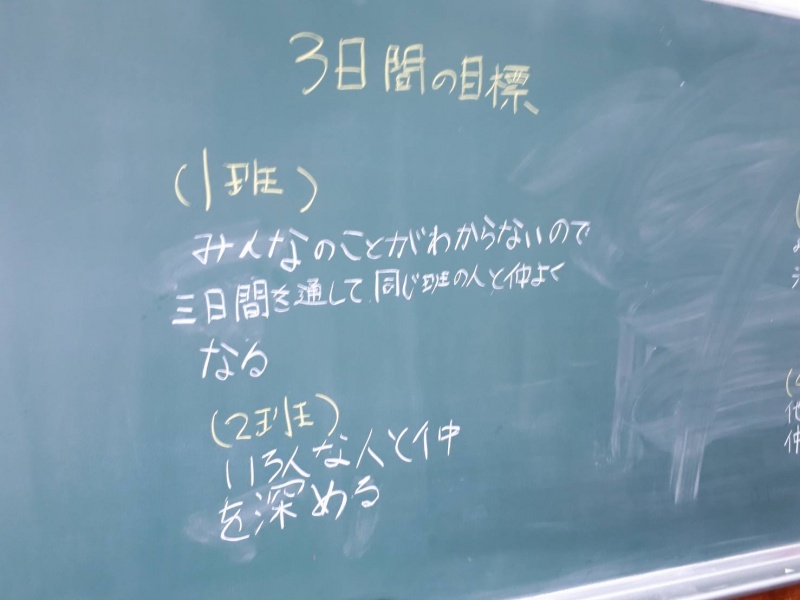 3日間の目標
(1班)
みんなのことがわからないので
三日間を通して同じ班の人と仲よく
なる
(2班)
いろんな人と仲
を深める